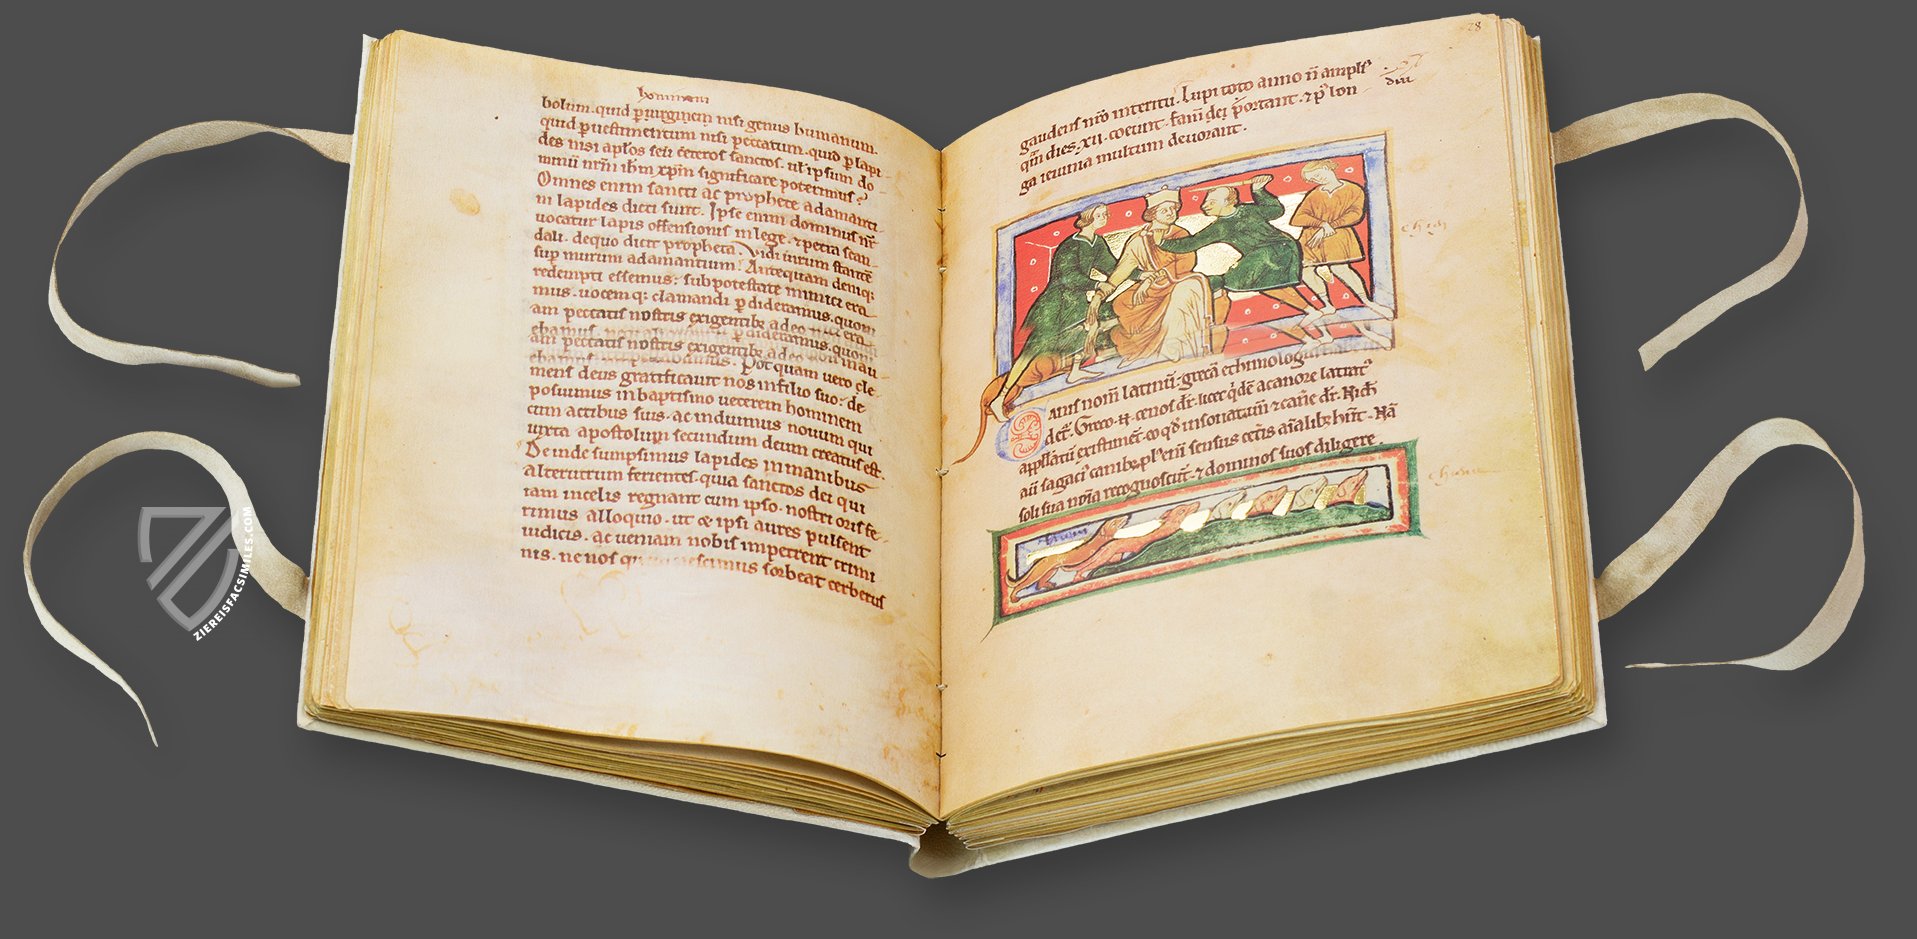 hominem
bolum. quid p uirginem nisi genus humanum.
quid p uestimentum nisi peccatum. quid p lapi-
des nisi aplos seu ceteros sanctos. ul ipsum do-
minum nrm ihm xpm significare poterimus?
Omnes enim sancti ac prophete adamanti-
ni lapides dicti sunt. Ipse enim dominus nr
uocatur lapis offensionis in lege. & petra scan-
dali. de quo dicit propheta. Vidi uirum stante
sup murum adamantium. Antequam deniq;
redempti essemus: sub potestate inimici era-
mus. uocem q; clamandi p dideramus. quoni
am peccatis nostris exigentibz adeo
ebamus p dideramus. quoni
am peccatis nostris exigentibz adeo non exau
ebamus. Postquam uero cle-
mens deus gratificauit nos in filio suo: de
posuimus in baptismo ueterem hominem
cum actibus suis. ac induimus nouum qui
iuxta apostolum secundum deum creatus est.
Deinde sumpsimus lapides in manibus
alterutrum ferientes. quia sanctos dei qui
iam in celis regnant cum ipso. nostri oris fe-
rimus alloquio. ut & ipsi aures pulsent
iudicis. ac ueniam nobis impetrent crimi
nis. ne nos sorbeat cerberus
28
gaudens nro interitu. Lupi toto anno n ampli
diu
qm dies .xii. coeunt. fame dei portant. & p lon
ga ieiunia multum deuorant.
Canis nom latinu. greca ethimologia
det. Greco .n. cenos dr. licet qde a canore latrat
appellatu existiment. eo qd insonat & cane dr. Nich
aut sagaci canibz. plenu sensus cetis aialibz hnt. Na
soli sua noia recognoscut. & dominos suos diligere.
ZIEREISFACSIMILES.COM